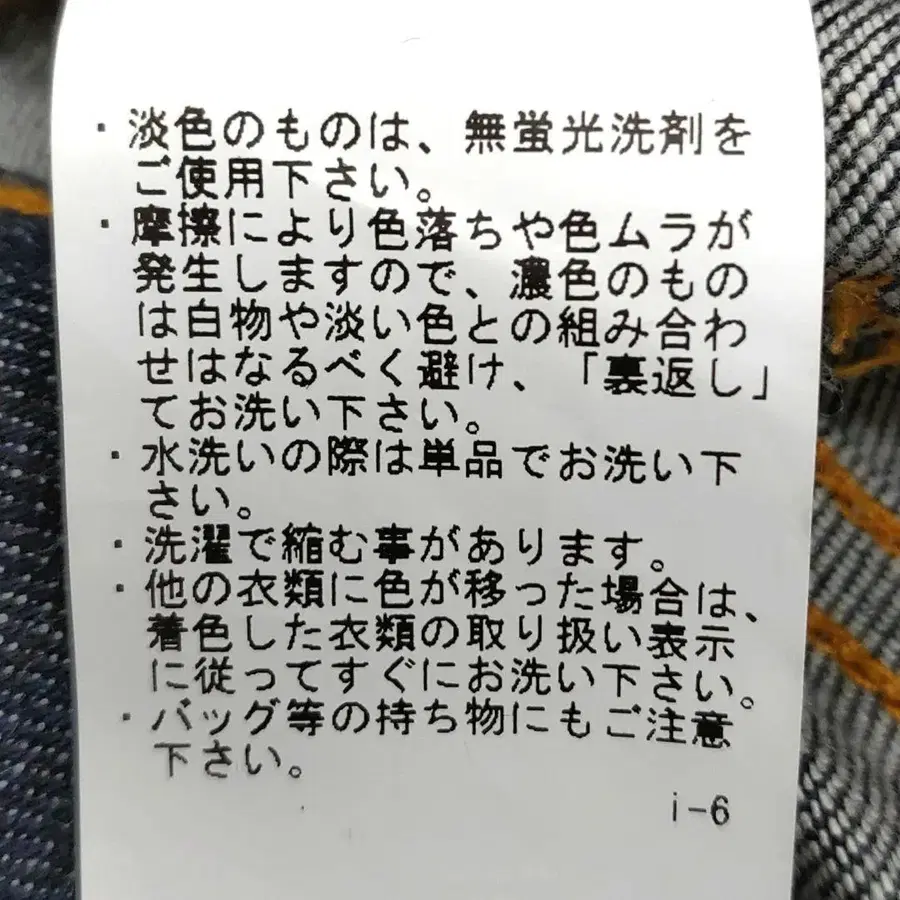 ・淡色のものは、無蛍光洗剤を
ご使用下さい。
・摩擦により色落ちや色ムラが
発生しますので、濃色のもの
は白物や淡い色との組み合わ
せはなるべく避け、「裏返し」
てお洗い下さい。
・水洗いの際は単品でお洗い下
さい。
・洗濯で縮む事があります。
・他の衣類に色が移った場合は、
着色した衣類の取り扱い表示
に従ってすぐにお洗い下さい。
・バッグ等の持ち物にもご注意
下さい。
i-6